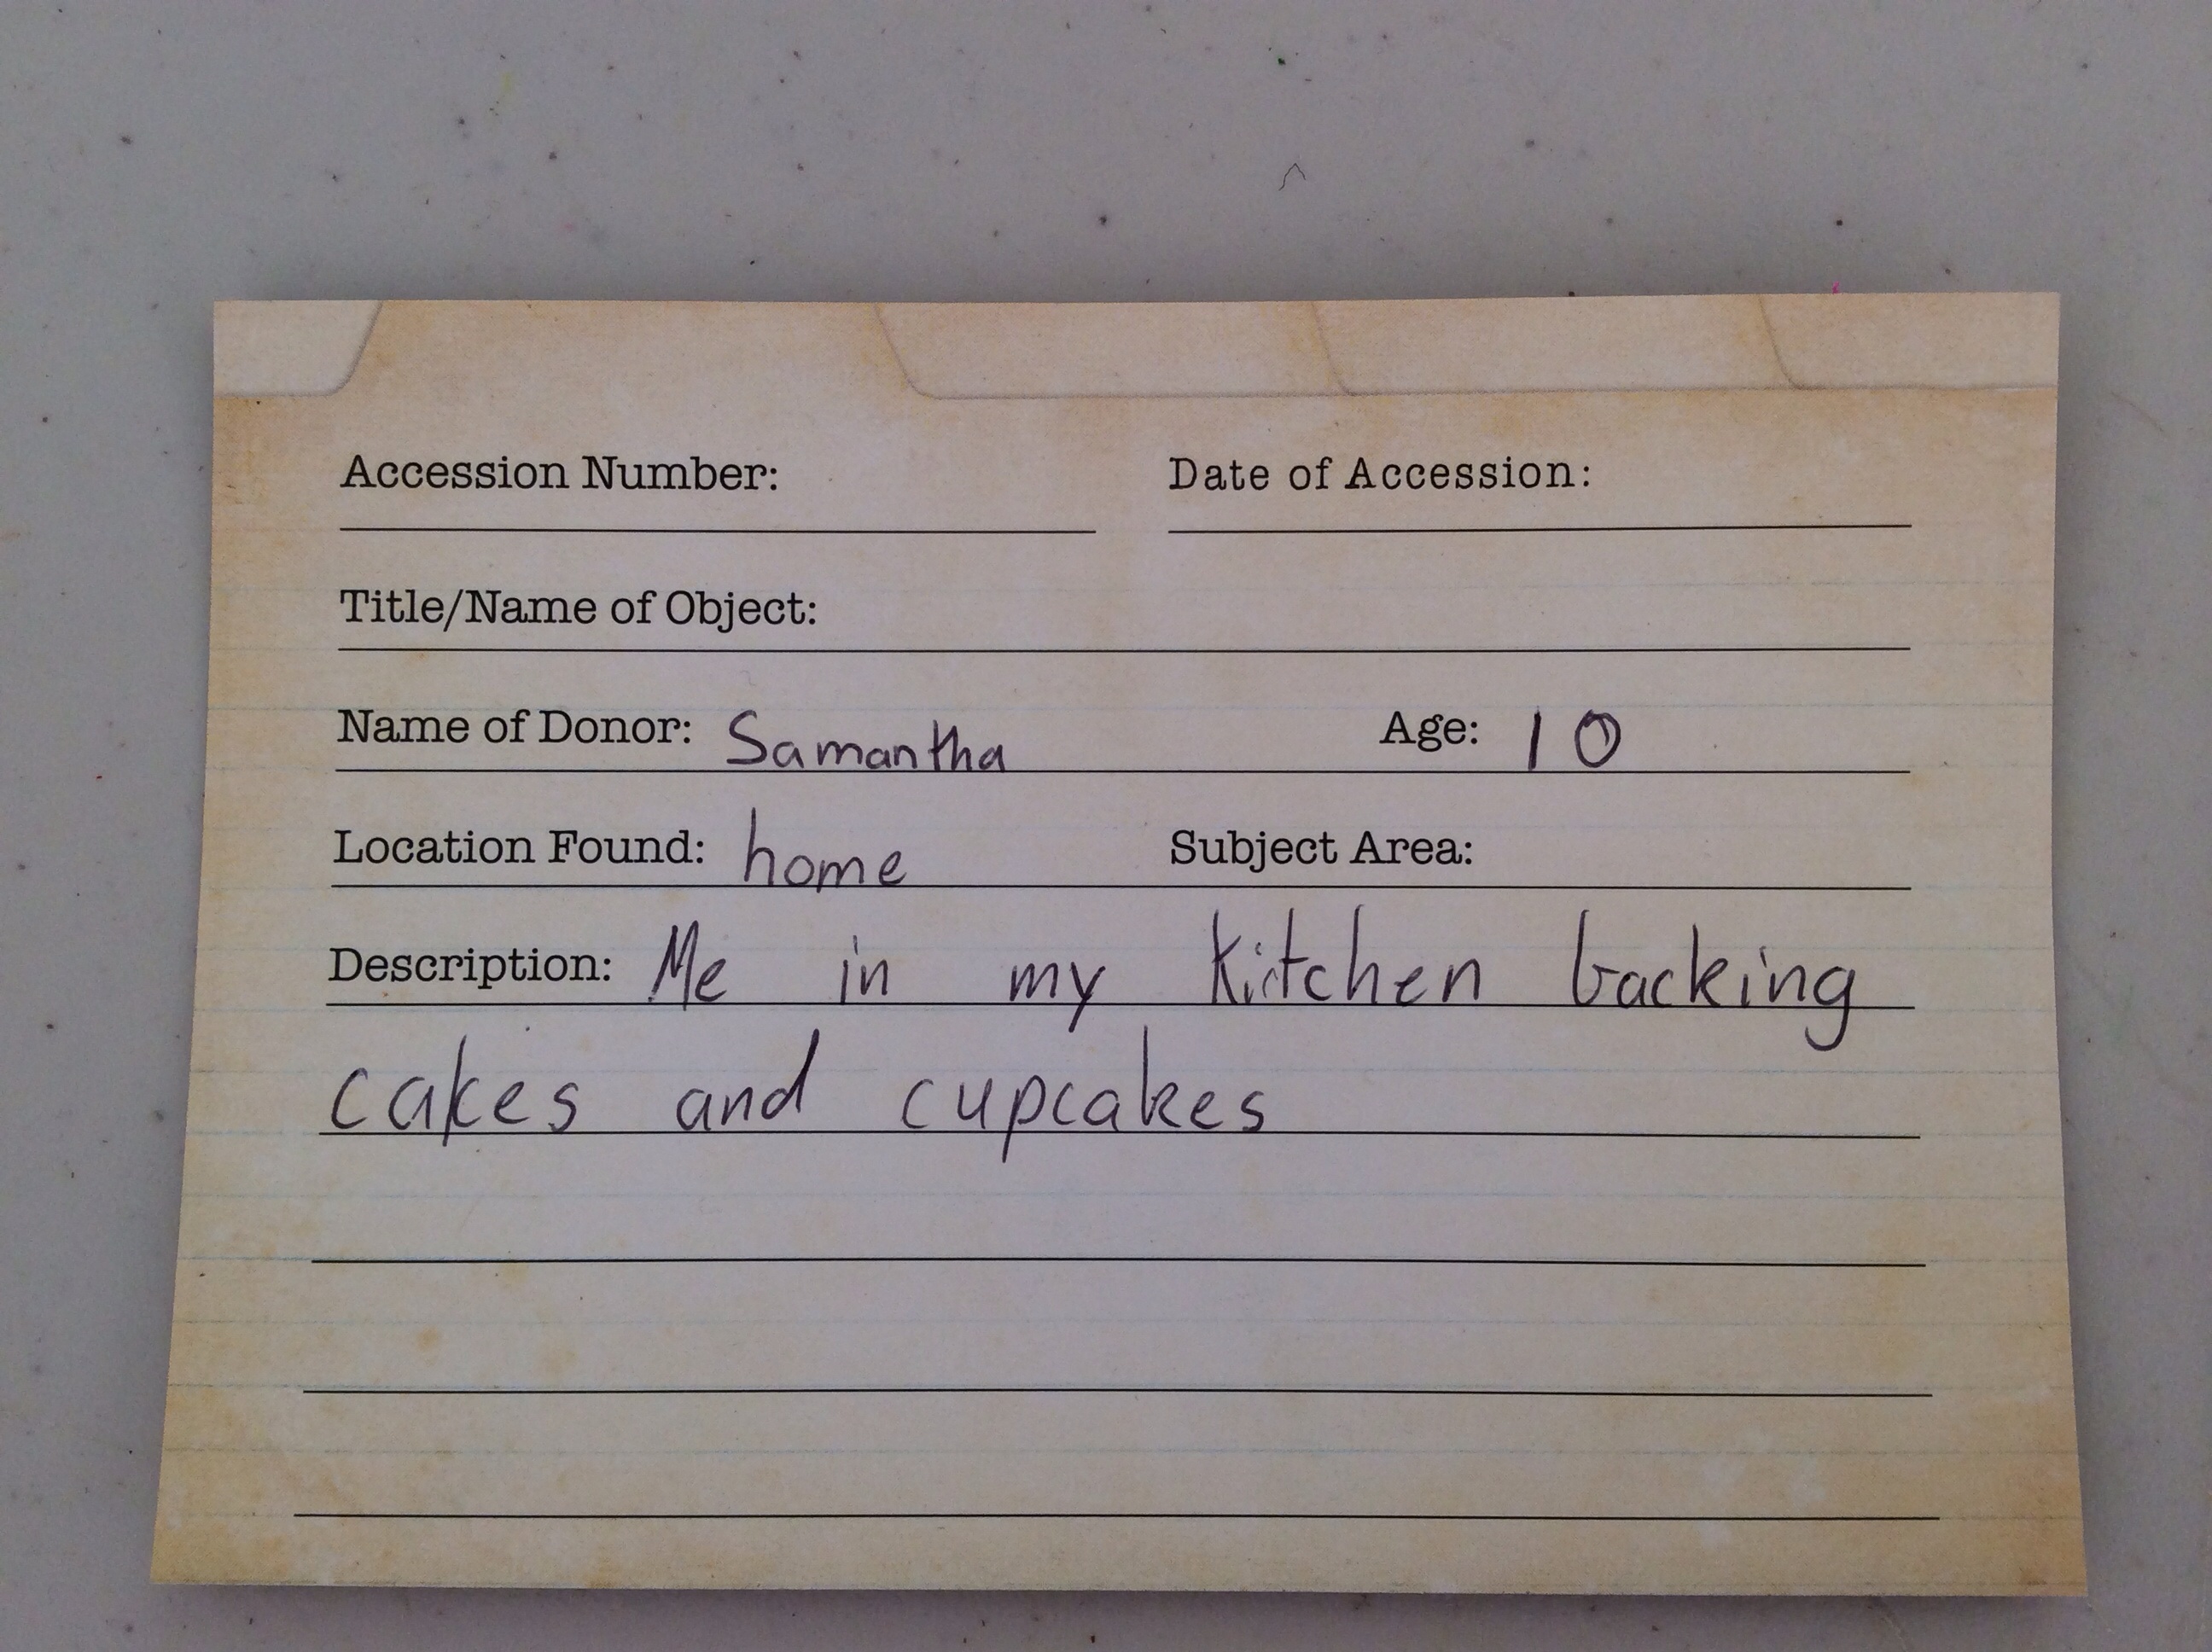 Accession Number: Date of Accession:
Title/Name of Object:
Name of Donor: Samantha Age: 10
Location Found: home Subject Area:
Description: Me in my kitchen backing
cakes and cupcakes